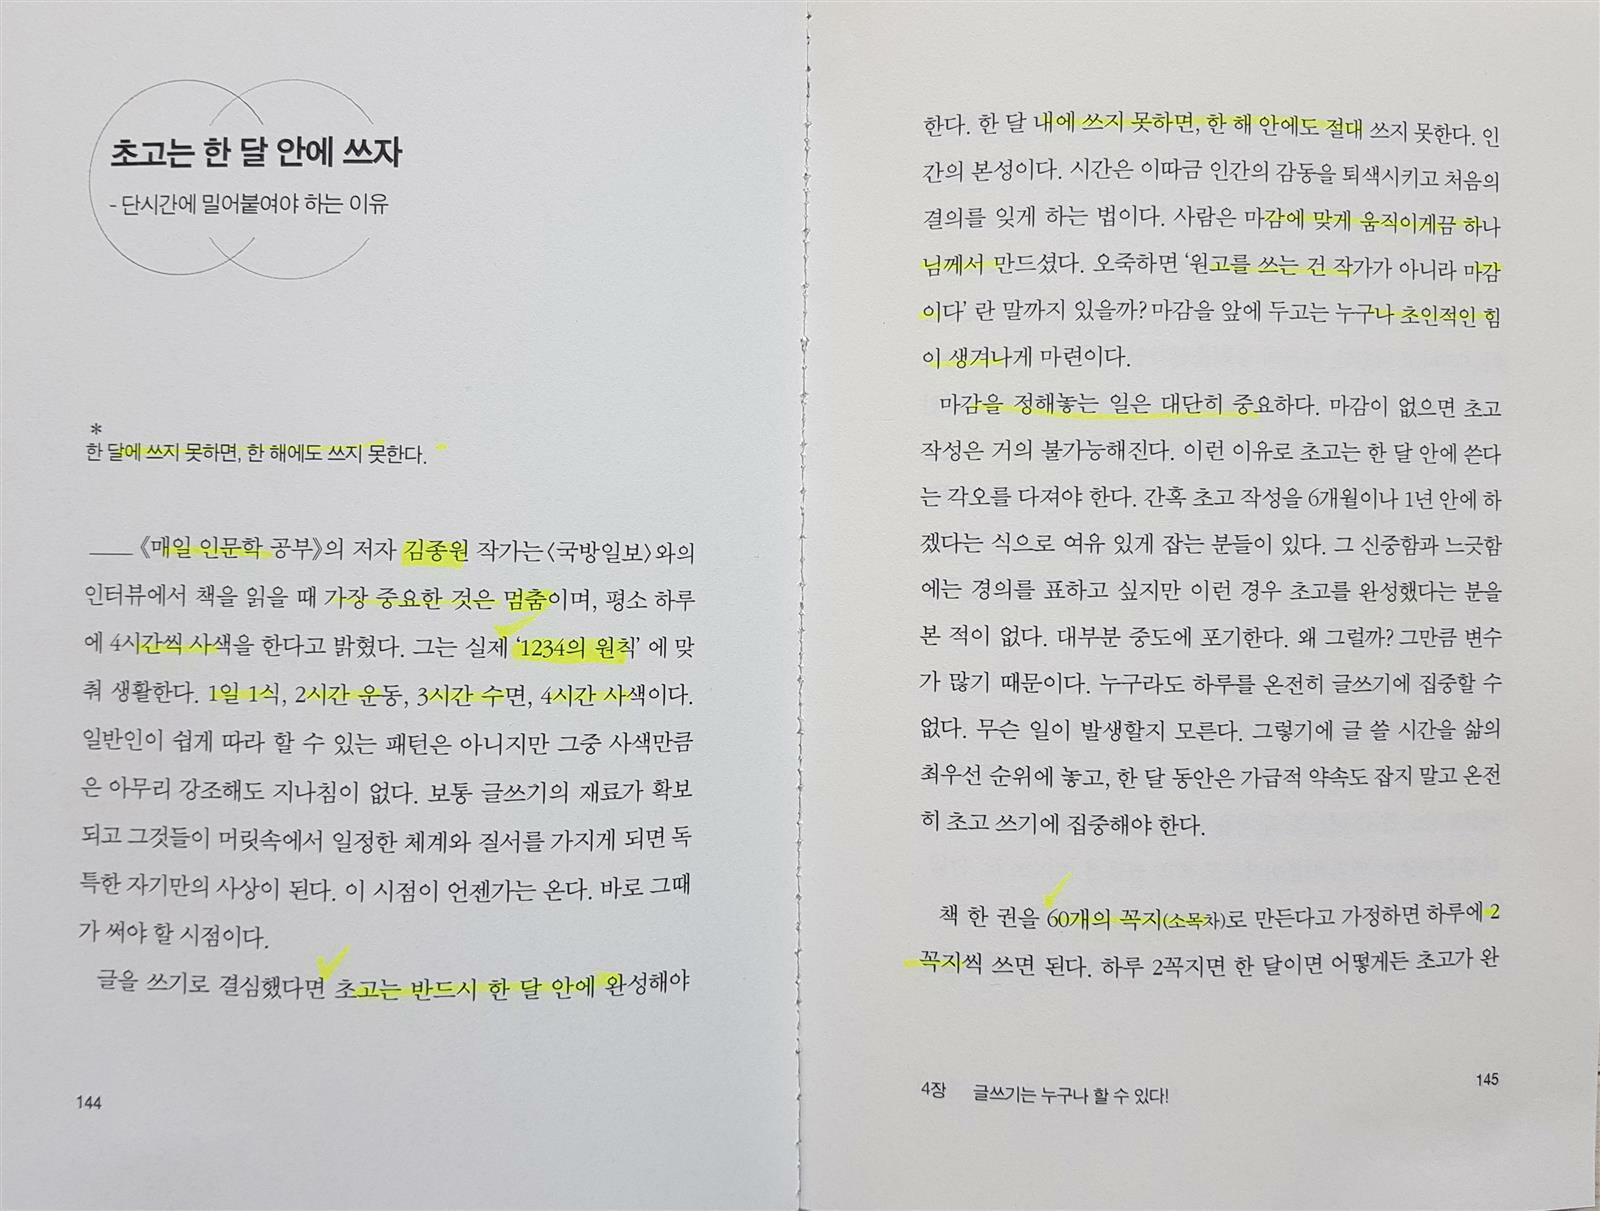 초고는 한 달 안에 쓰자
- 단시간에 밀어붙여야 하는 이유
*
한 달에 쓰지 못하면, 한 해에도 쓰지 못한다.
《매일 인문학 공부》의 저자 김종원 작가는 〈국방일보〉와의
인터뷰에서 책을 읽을 때 가장 중요한 것은 멈춤이며, 평소 하루
에 4시간씩 사색을 한다고 밝혔다. 그는 실제 ‘1234의 원칙’ 에 맞
춰 생활한다. 1일 1식, 2시간 운동, 3시간 수면, 4시간 사색이다.
일반인이 쉽게 따라 할 수 있는 패턴은 아니지만 그중 사색만큼
은 아무리 강조해도 지나침이 없다. 보통 글쓰기의 재료가 확보
되고 그것들이 머릿속에서 일정한 체계와 질서를 가지게 되면 독
특한 자기만의 사상이 된다. 이 시점이 언젠가는 온다. 바로 그때
가 써야 할 시점이다.
글을 쓰기로 결심했다면 초고는 반드시 한 달 안에 완성해야
144
한다. 한 달 내에 쓰지 못하면, 한 해 안에도 절대 쓰지 못한다. 인
간의 본성이다. 시간은 이따금 인간의 감동을 퇴색시키고 처음의
결의를 잊게 하는 법이다. 사람은 마감에 맞게 움직이게끔 하나
님께서 만드셨다. 오죽하면 ‘원고를 쓰는 건 작가가 아니라 마감
이다’ 란 말까지 있을까? 마감을 앞에 두고는 누구나 초인적인 힘
이 생겨나게 마련이다.
마감을 정해놓는 일은 대단히 중요하다. 마감이 없으면 초고
작성은 거의 불가능해진다. 이런 이유로 초고는 한 달 안에 쓴다
는 각오를 다져야 한다. 간혹 초고 작성을 6개월이나 1년 안에 하
겠다는 식으로 여유 있게 잡는 분들이 있다. 그 신중함과 느긋함
에는 경의를 표하고 싶지만 이런 경우 초고를 완성했다는 분을
본 적이 없다. 대부분 중도에 포기한다. 왜 그럴까? 그만큼 변수
가 많기 때문이다. 누구라도 하루를 온전히 글쓰기에 집중할 수
없다. 무슨 일이 발생할지 모른다. 그렇기에 글 쓸 시간을 삶의
최우선 순위에 놓고, 한 달 동안은 가급적 약속도 잡지 말고 온전
히 초고 쓰기에 집중해야 한다.
책 한 권을 60개의 꼭지(소목차)로 만든다고 가정하면 하루에 2
꼭지씩 쓰면 된다. 하루 2꼭지면 한 달이면 어떻게든 초고가 완
4장 글쓰기는 누구나 할 수 있다!
145